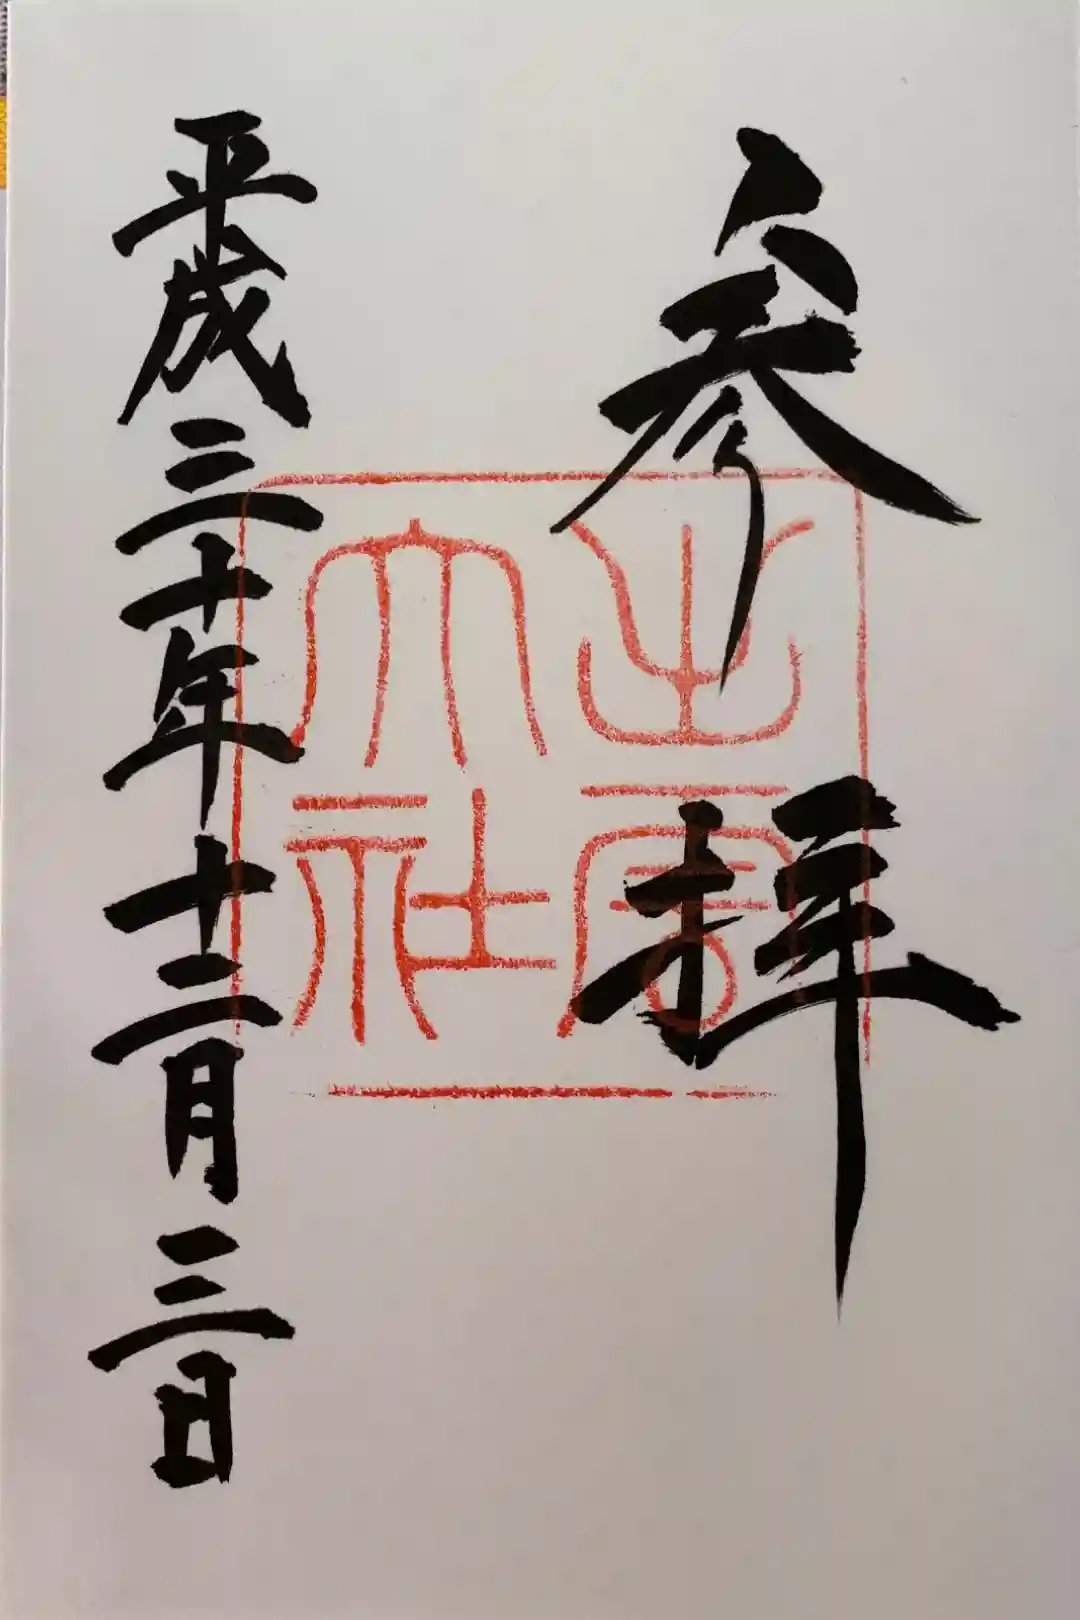 参拝
出雲
大社
平成三十年十二月三日